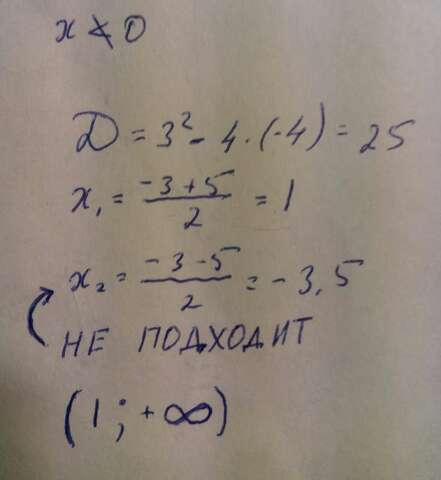 x ≮ 0
D = 3² - 4 · (-4) = 25
x₁ = (-3 + 5)/2 = 1
x₂ = (-3 - 5)/2 = -3,5
НЕ ПОДХОДИТ
(1; +∞)